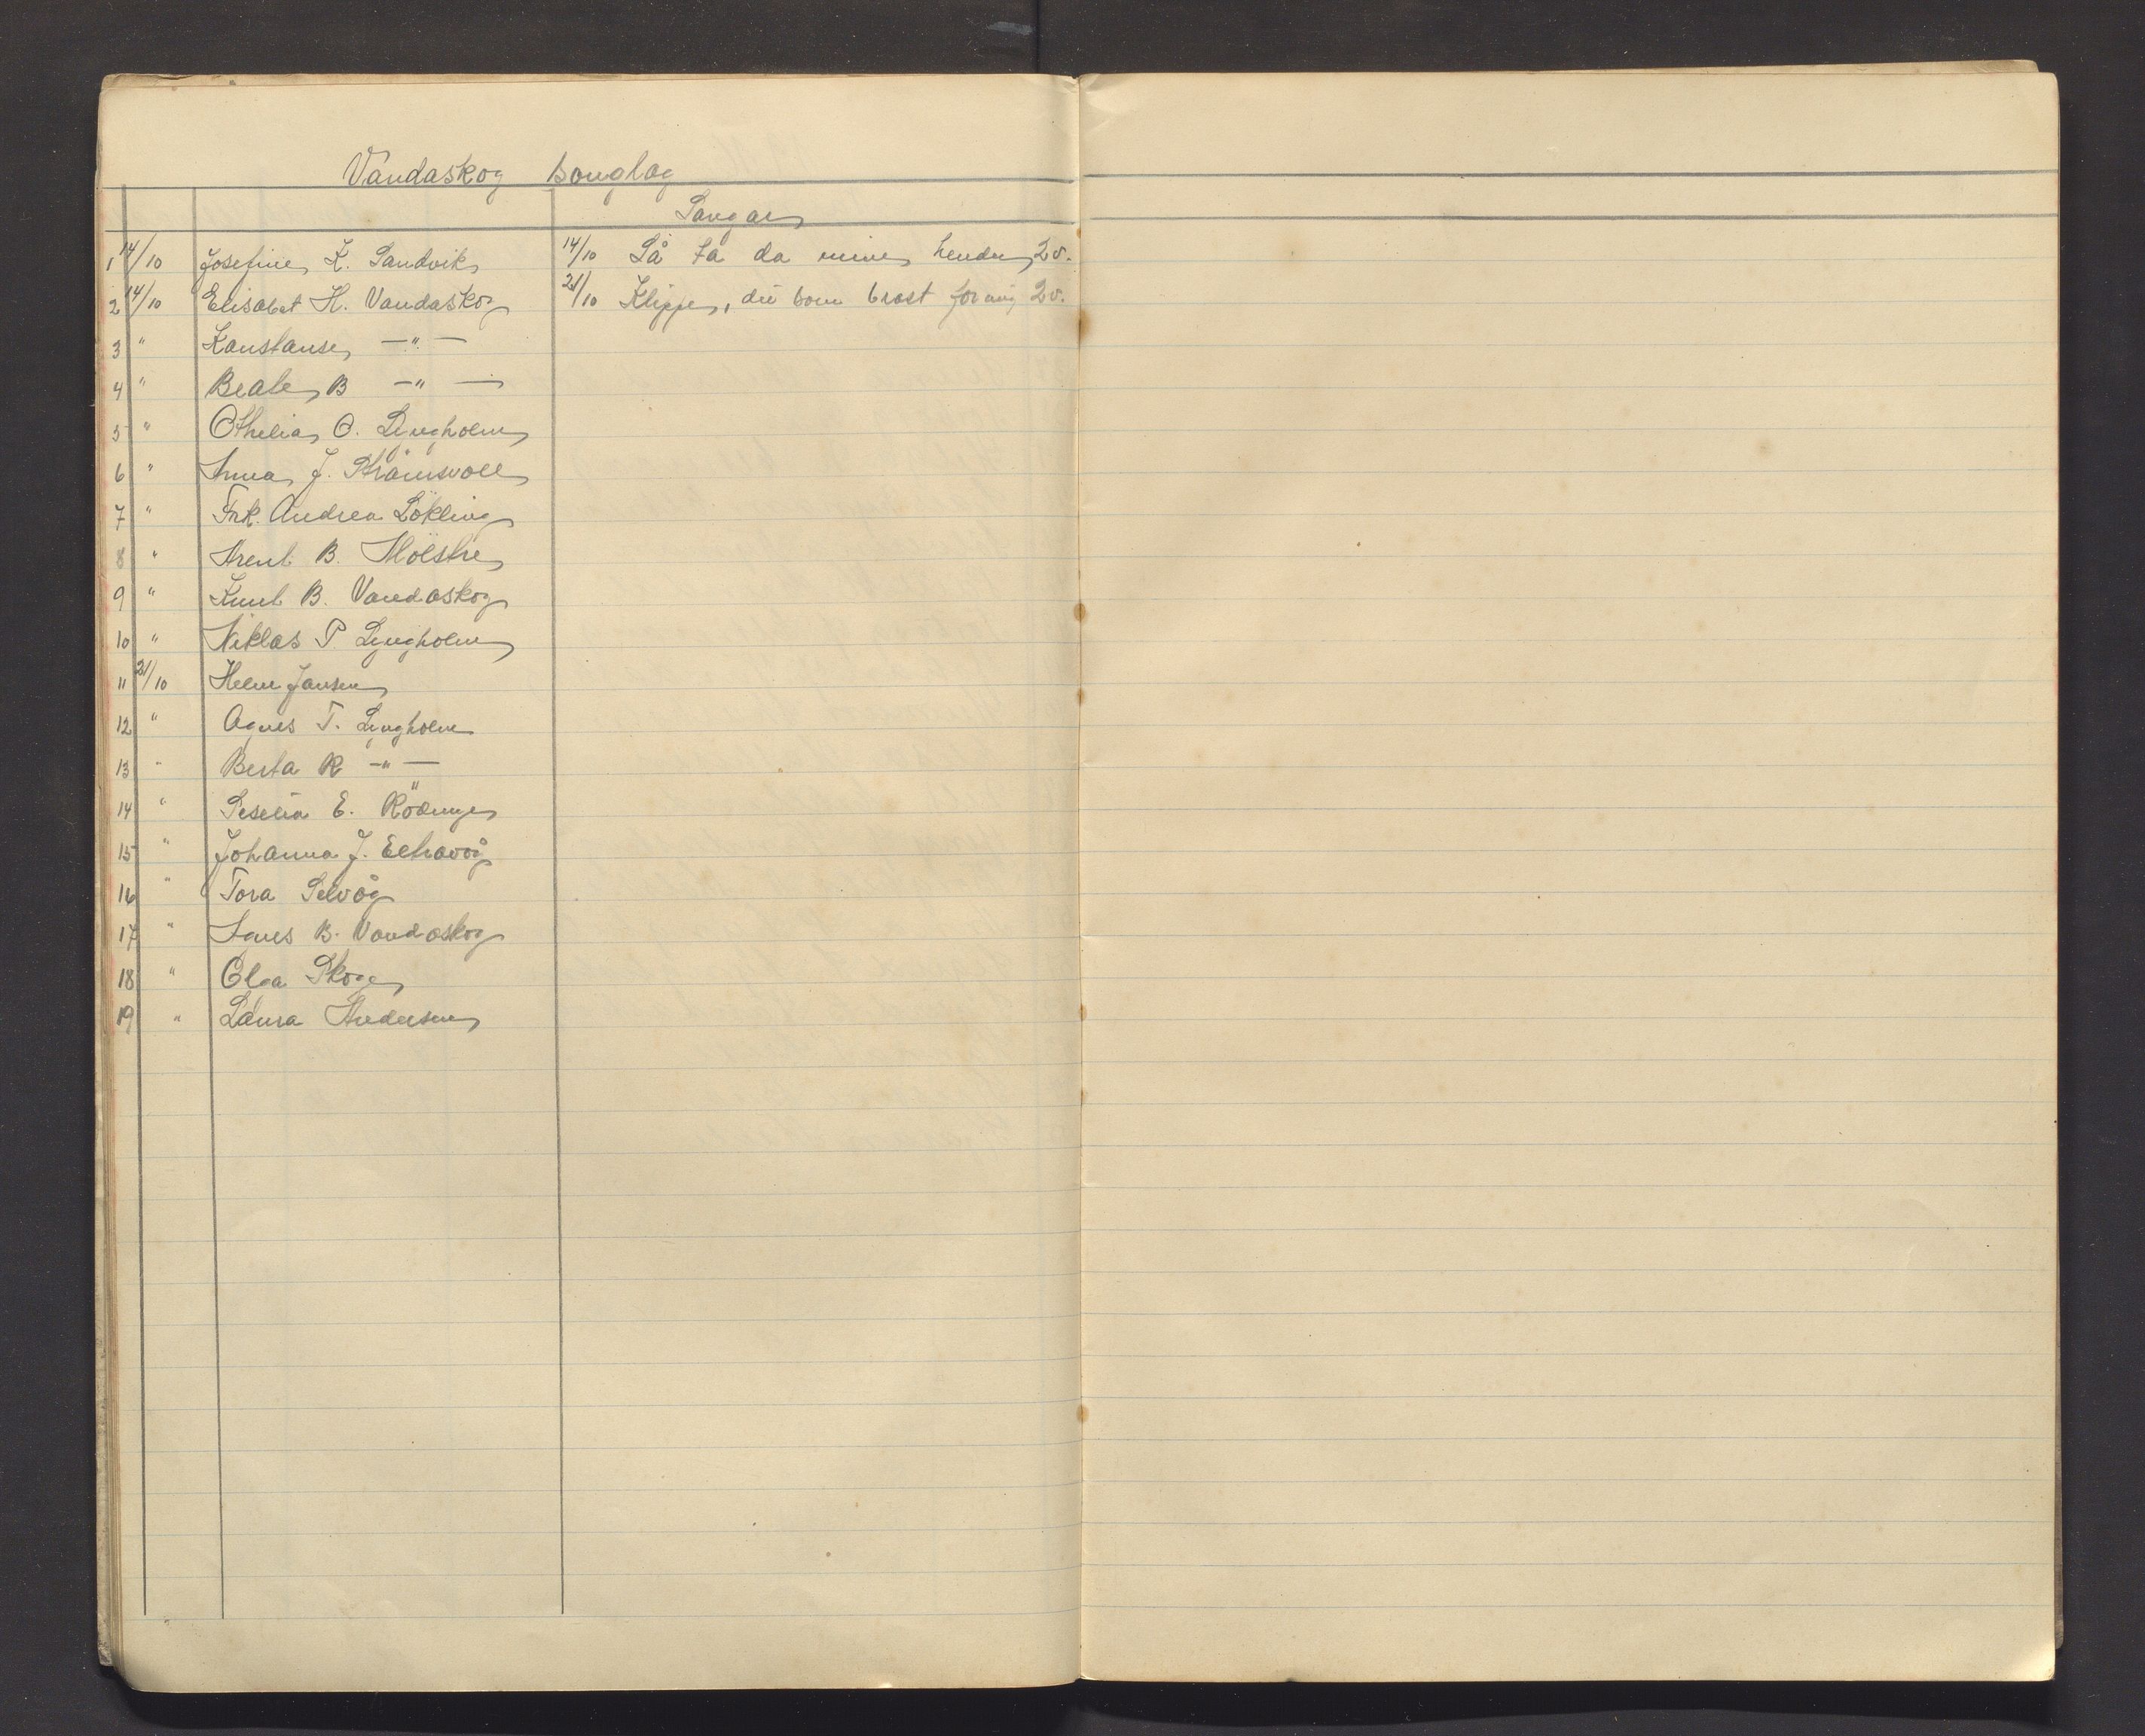 Vandaskog songlag
Sangar
1 14/10 Josefine K. Sandvik 14/10 Så ta da mine hender 2 v.
2 14/10 Elisabet H. Vandaskog 21/10 Klippe, du som brast for mig 2 v.
3 " Konstanse — " —
4 " Beate B — " —
5 " Othelia O. Lyngholm
6 " Anna J. Strømsvoll
7 " Frk. Andrea Løkling
8 " Arent B. Mølstre
9 " Knut B. Vandaskog
10 " Niklas P Lyngholm
11 21/10 Helene Jansen
12 " Agnes T. Lyngholm
13 " Berta R — " —
14 " Seselia E.
15 " Johanna J. Eltravåg
16 " Tora Selvåg
17 " B. Vandaskog
18 " Olga Skoge
19 " Laura Andersen